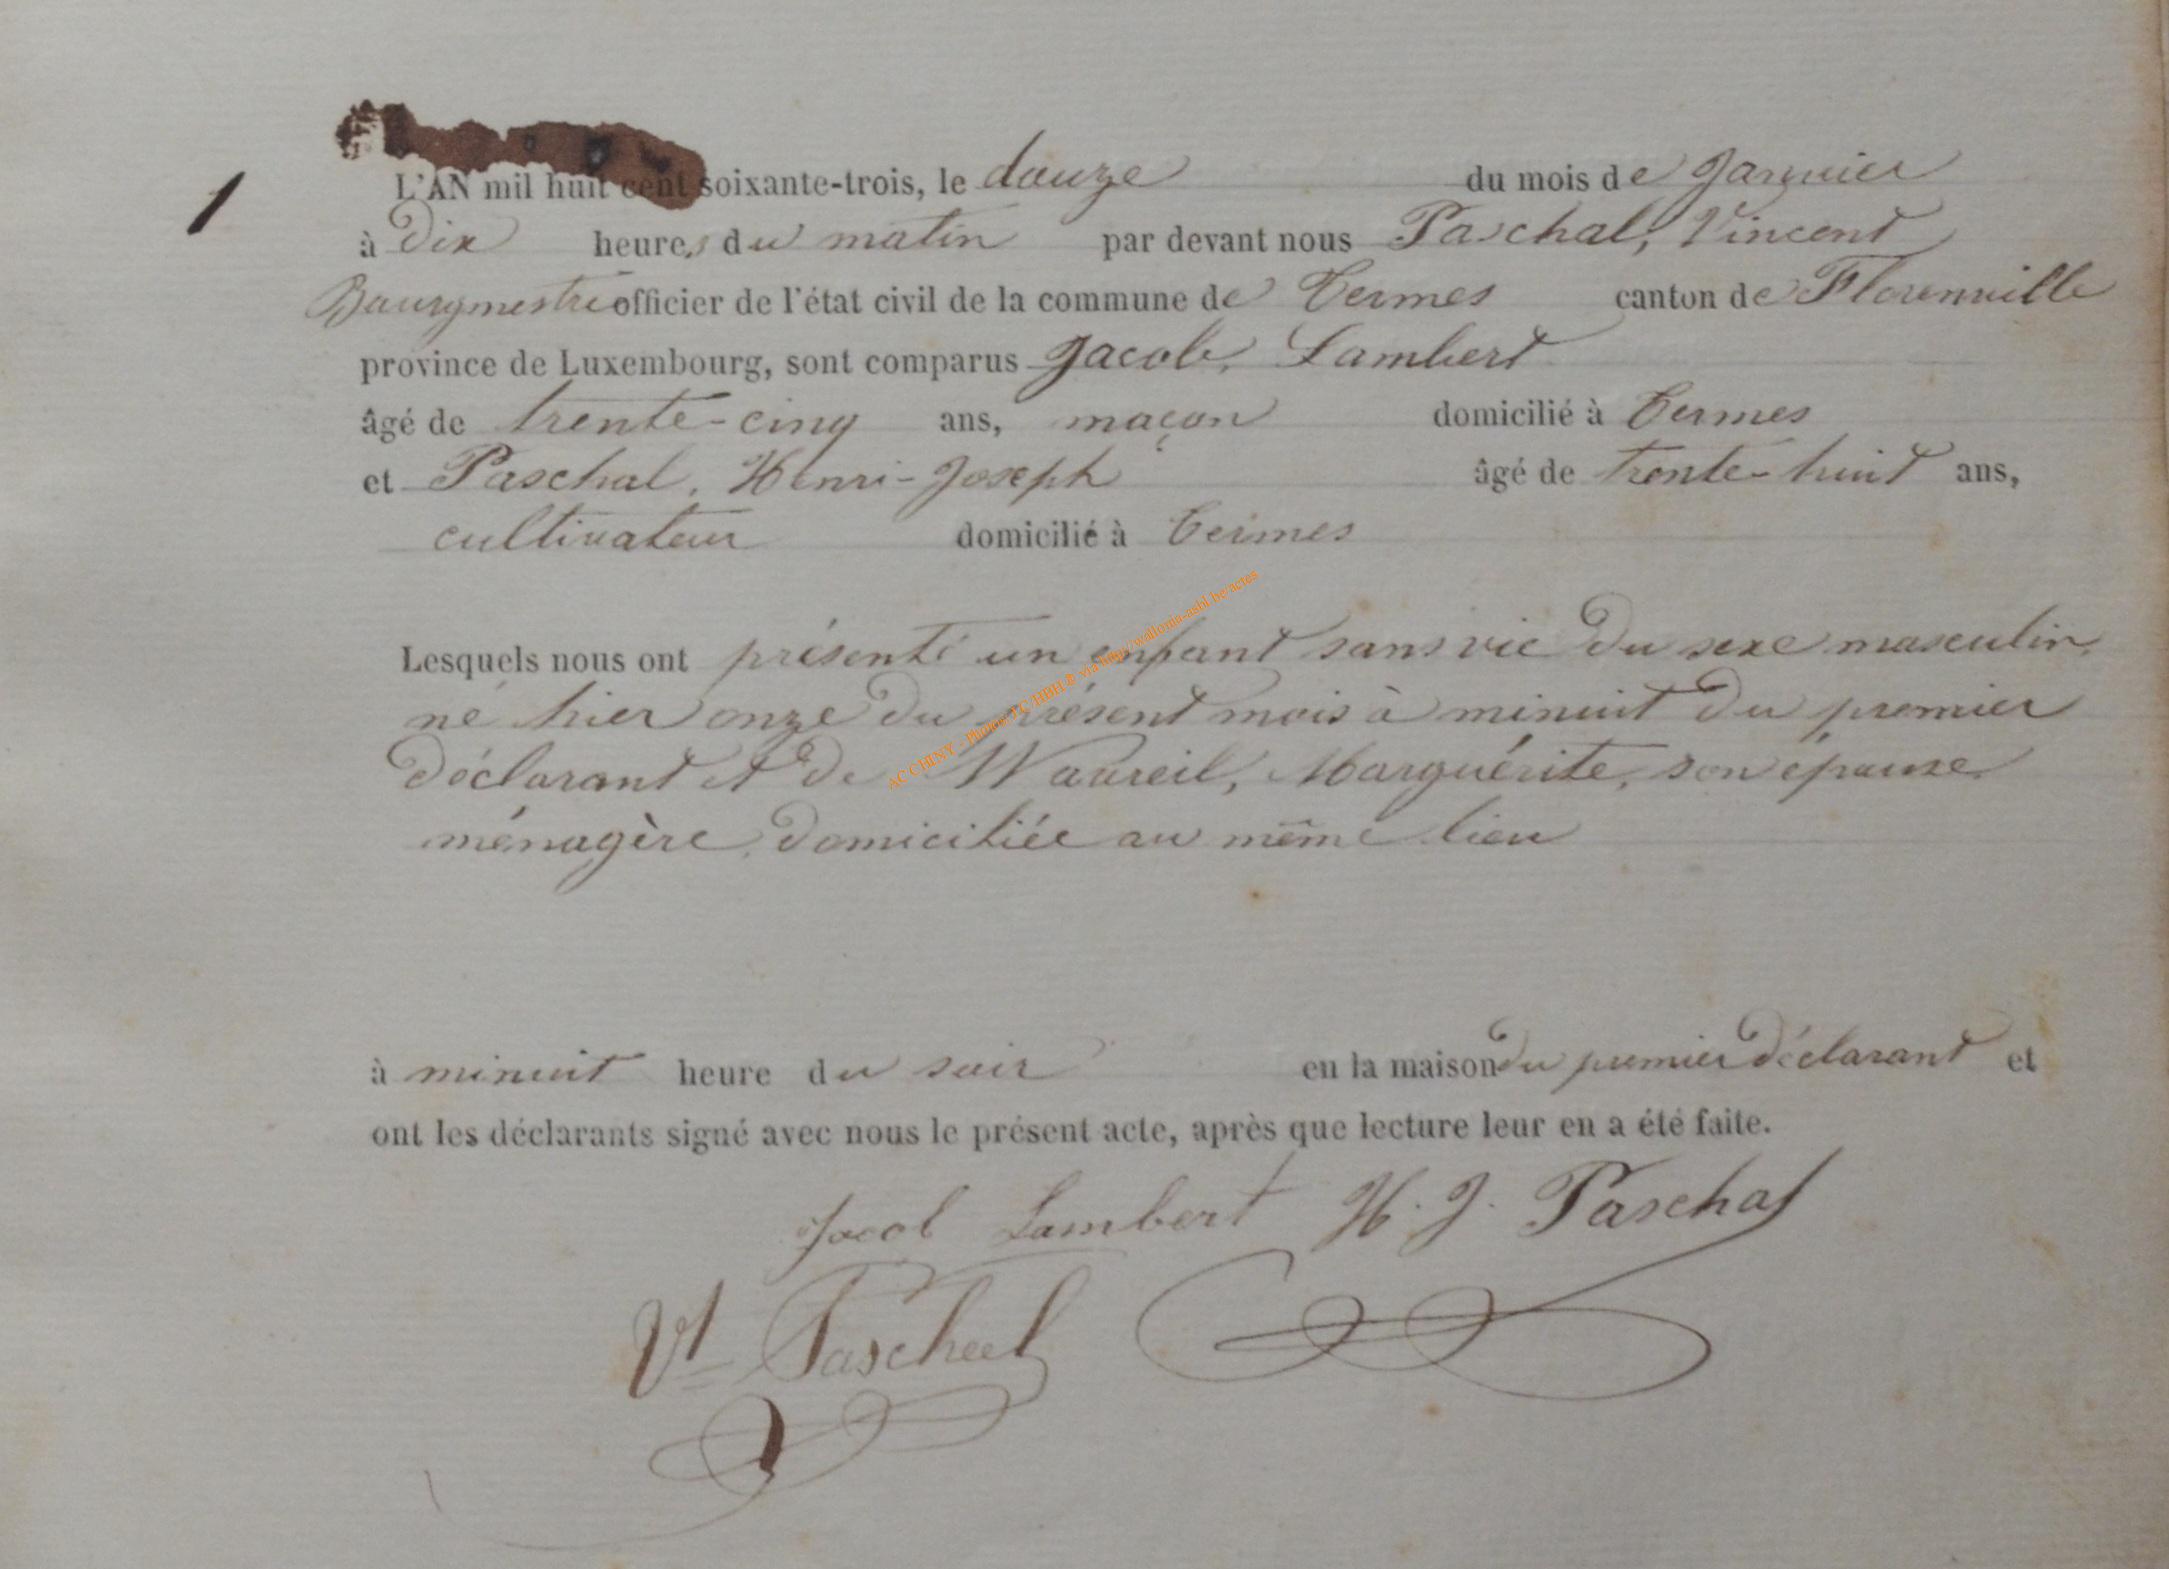 1
L'AN mil huit cent soixante-trois, le douze du mois de Janvier
à dix heures du matin par devant nous Paschal, Vincent
Bourgmestre officier de l'état civil de la commune de Termes canton de Florenville
province de Luxembourg, sont comparus Jacob, Lambert
âgé de trente-cinq ans, maçon domicilié à Termes
et Paschal, Henri-Joseph âgé de trente-huit ans,
cultivateur domicilié à Termes
Lesquels nous ont présenté un enfant sans vie du sexe masculin,
né hier onze du présent mois à minuit du premier
déclarant et de Wavreil, Marguérite, son épouse
ménagère, domiciliée au même lieu
à minuit heure du soir en la maison du premier déclarant et
ont les déclarants signé avec nous le présent acte, après que lecture leur en a été faite.
Jacob Lambert H. J. Paschal
Vt Paschal
AC CHINY - Photos TC/HBH® via http://wallonia-asbl.be/actes